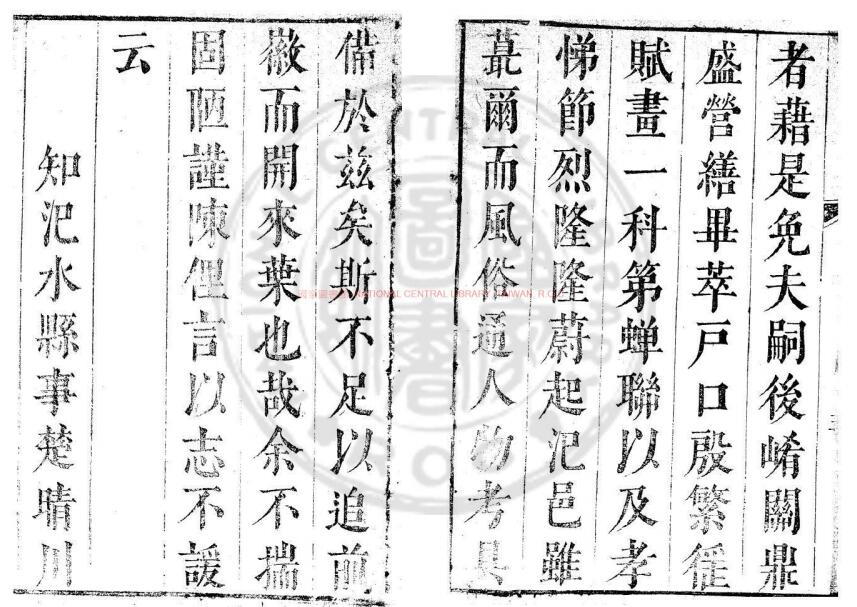 者藉是免夫嗣後崤關鼎
盛營繕畢萃戶口殷繁徭
賦畫一科第蟬聯以及孝
悌節烈隆隆蔚起汜邑雖
蕞爾而風俗通人物考具
備於茲矣斯不足以追前
徽而開來葉也哉余不揣
固陋謹陳俚言以志不諼
云
知汜水縣事楚晴川
NATIONAL CENTRAL LIBRARY, TAIWAN, R.O.C